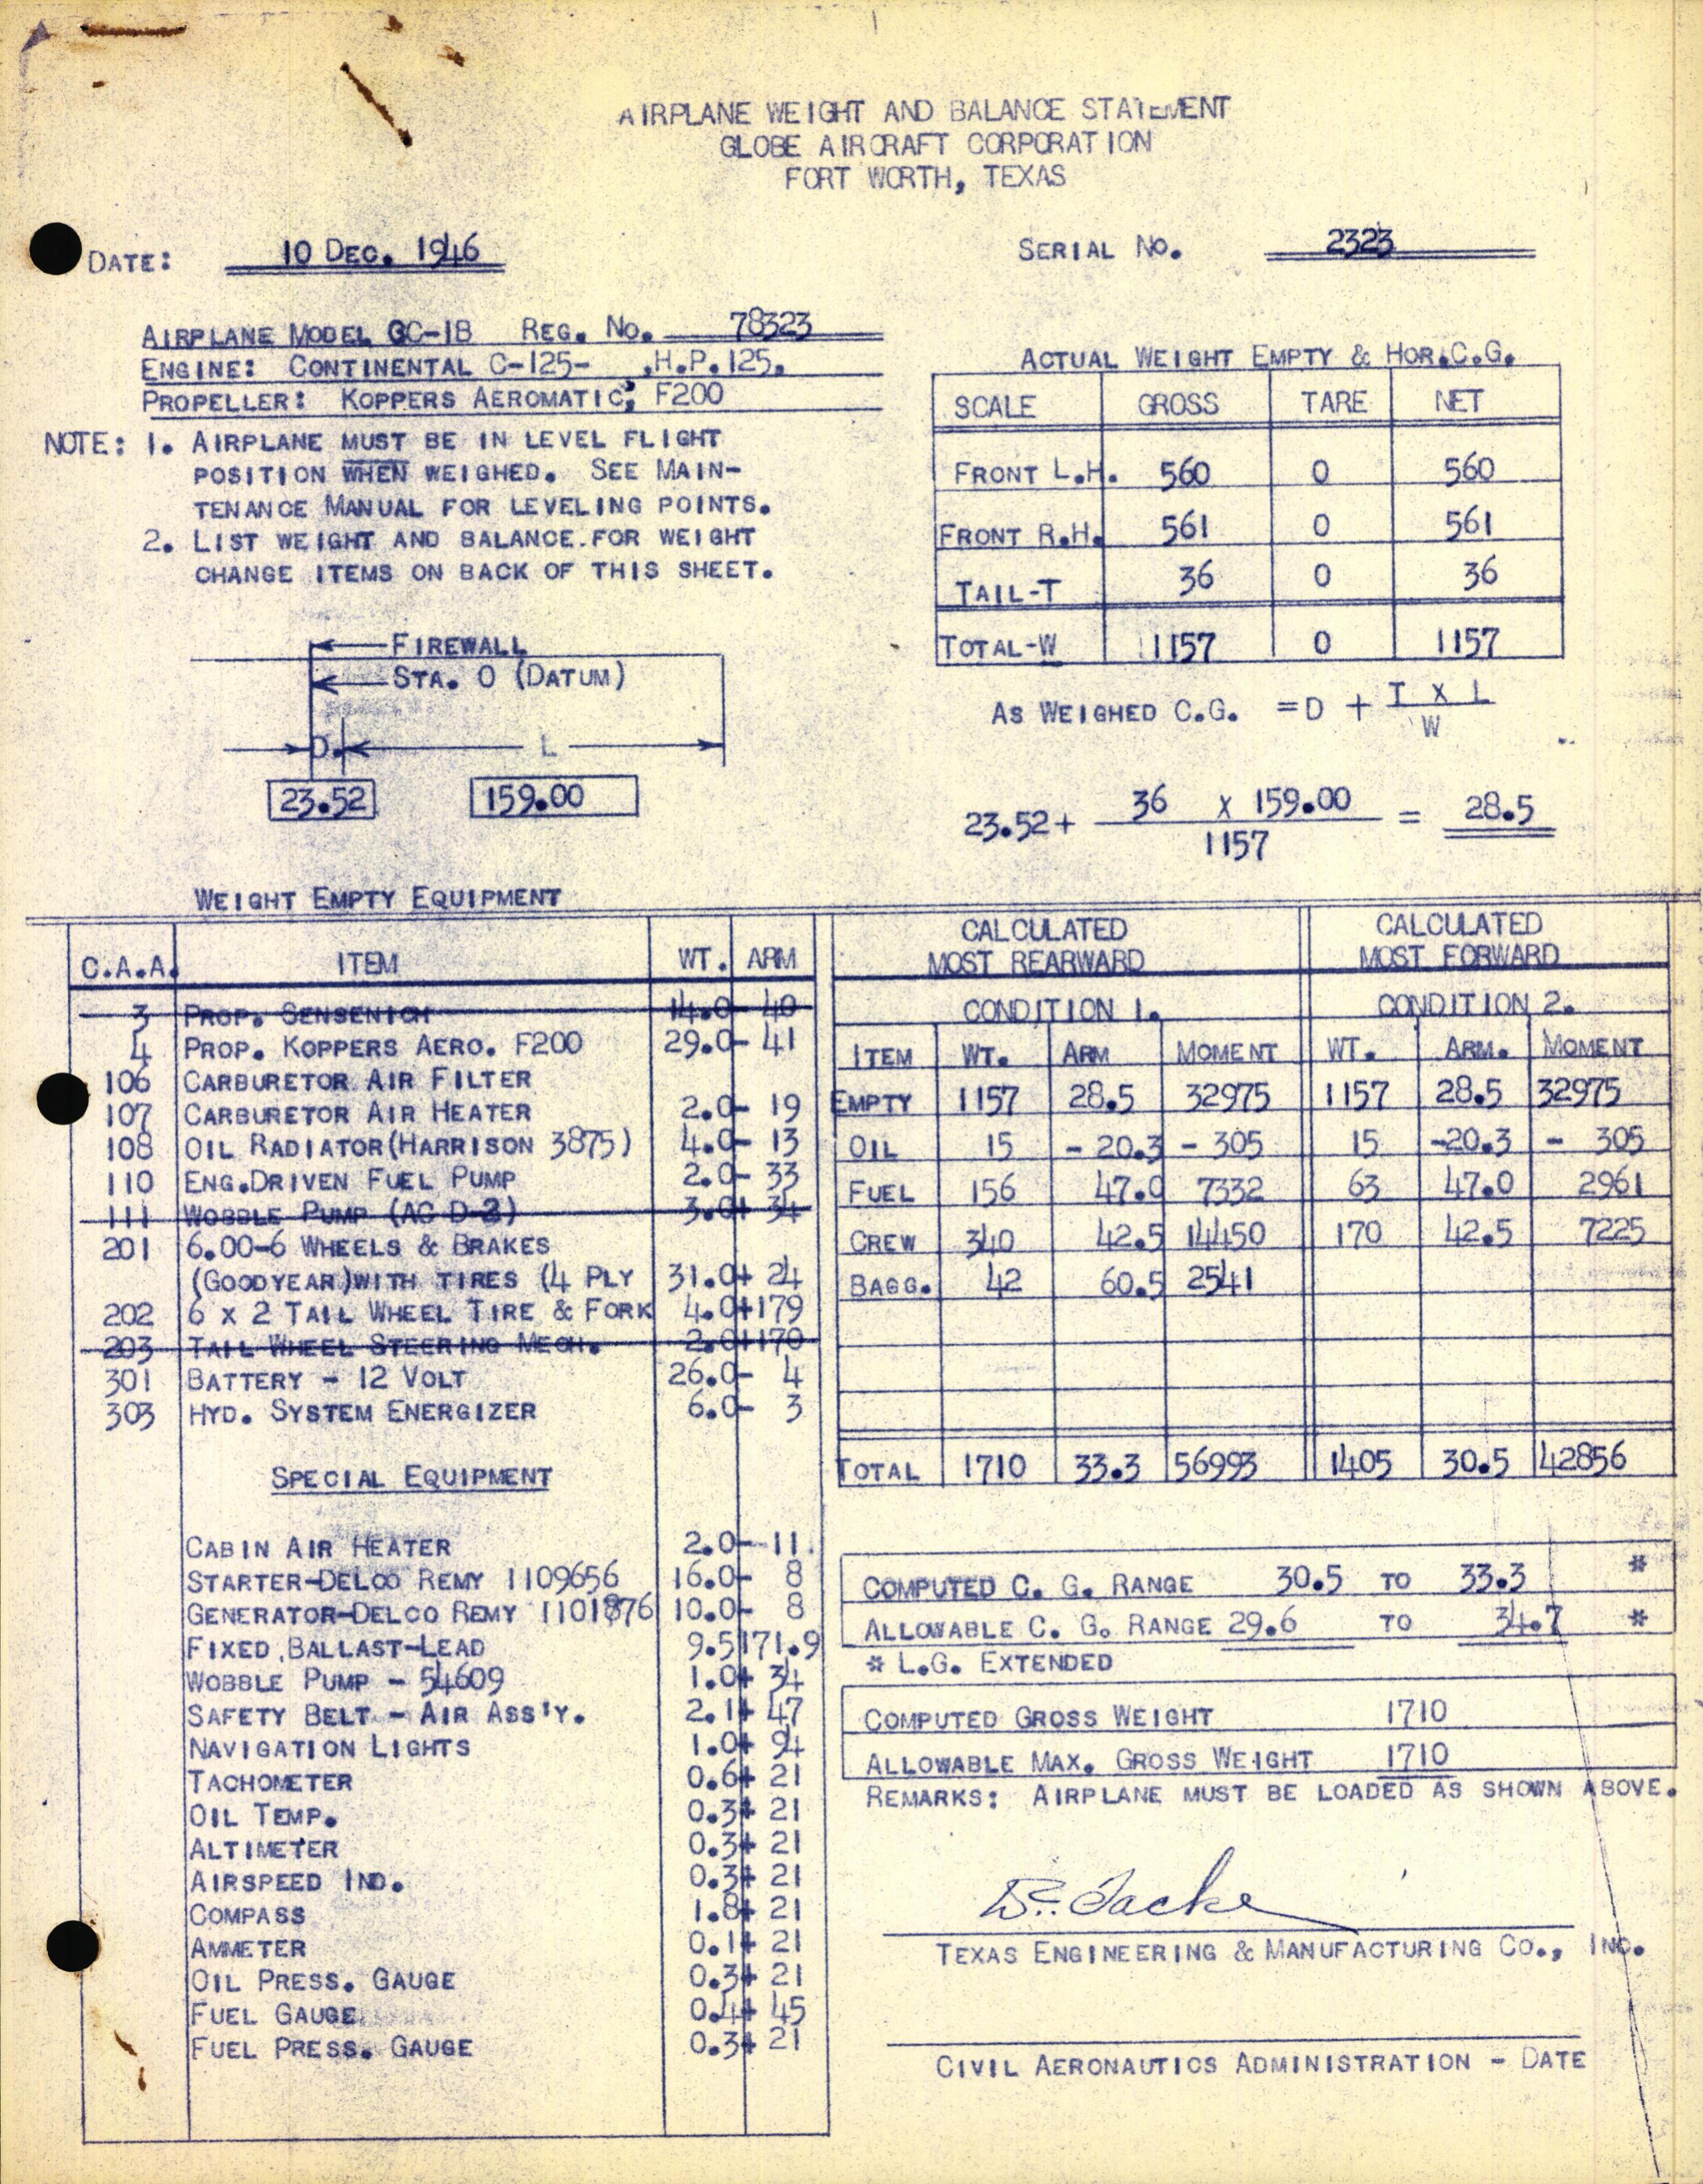 AIRPLANE WEIGHT AND BALANCE STATEMENT
GLOBE AIRCRAFT CORPORATION
FORT WORTH, TEXAS
DATE: 10 DEC. 1946
SERIAL NO. 2323
AIRPLANE MODEL GC-1B REG. NO. 78323
ENGINE: CONTINENTAL C-125- ,H.P.125.
PROPELLER: KOPPERS AEROMATIC, F200
NOTE: 1. AIRPLANE MUST BE IN LEVEL FLIGHT
POSITION WHEN WEIGHED. SEE MAIN-
TENANCE MANUAL FOR LEVELING POINTS.
2. LIST WEIGHT AND BALANCE.FOR WEIGHT
CHANGE ITEMS ON BACK OF THIS SHEET.
ACTUAL WEIGHT EMPTY & HOR.C.G.
SCALE GROSS TARE NET
FRONT L.H. 560 0 560
FRONT R.H. 561 0 561
TAIL-T 36 0 36
TOTAL-W 1157 0 1157
FIREWALL
STA. 0 (DATUM)
D. L
23.52 159.00
AS WEIGHED C.G. =D + T X L
W
23.52+ 36 X 159.00 = 28.5
1157
WEIGHT EMPTY EQUIPMENT
C.A.A. ITEM WT. ARM
3 PROP. SENSENICH 14.0- 40
4 PROP. KOPPERS AERO. F200 29.0- 41
106 CARBURETOR AIR FILTER
107 CARBURETOR AIR HEATER 2.0- 19
108 OIL RADIATOR(HARRISON 3875) 4.0- 13
110 ENG.DRIVEN FUEL PUMP 2.0- 33
111 WOBBLE PUMP (AC D-2) 3.0+ 34
201 6.00-6 WHEELS & BRAKES
(GOODYEAR)WITH TIRES (4 PLY 31.0+ 24
202 6 X 2 TAIL WHEEL TIRE & FORK 4.0+179
203 TAIL WHEEL STEERING MECH. 2.0+170
301 BATTERY - 12 VOLT 26.0- 4
303 HYD. SYSTEM ENERGIZER 6.0- 3
SPECIAL EQUIPMENT
CABIN AIR HEATER 2.0- 11.
STARTER-DELCO REMY 1109656 16.0- 8
GENERATOR-DELCO REMY 1101876 10.0- 8
FIXED BALLAST-LEAD 9.5 171.9
WOBBLE PUMP - 54609 1.0+ 34
SAFETY BELT - AIR ASS'Y. 2.1+ 47
NAVIGATION LIGHTS 1.0+ 94
TACHOMETER 0.6+ 21
OIL TEMP. 0.3+ 21
ALTIMETER 0.3+ 21
AIRSPEED IND. 0.3+ 21
COMPASS 1.8+ 21
AMMETER 0.1+ 21
OIL PRESS. GAUGE 0.3+ 21
FUEL GAUGE 0.4+ 45
FUEL PRESS. GAUGE 0.3+ 21
CALCULATED CALCULATED
MOST REARWARD MOST FORWARD
CONDITION 1. CONDITION 2.
ITEM WT. ARM MOMENT WT. ARM. MOMENT
EMPTY 1157 28.5 32975 1157 28.5 32975
OIL 15 - 20.3 - 305 15 -20.3 - 305
FUEL 156 47.0 7332 63 47.0 2961
CREW 340 42.5 14450 170 42.5 7225
BAGG. 42 60.5 2541
TOTAL 1710 33.3 56993 1405 30.5 42856
COMPUTED C. G. RANGE 30.5 TO 33.3 *
ALLOWABLE C. G. RANGE 29.6 TO 34.7 *
* L.G. EXTENDED
COMPUTED GROSS WEIGHT 1710
ALLOWABLE MAX. GROSS WEIGHT 1710
REMARKS: AIRPLANE MUST BE LOADED AS SHOWN ABOVE.
TEXAS ENGINEERING & MANUFACTURING CO., INC.
CIVIL AERONAUTICS ADMINISTRATION - DATE